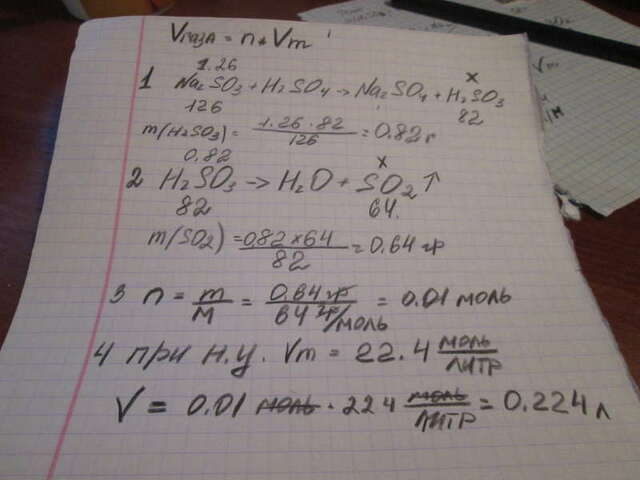 Vгаза = n * Vm
1.26 x
1 Na2SO3 + H2SO4 → Na2SO4 + H2SO3
126 82
m(H2SO3) = 1.26 · 82 / 126 = 0.82 г
0.82 x
2 H2SO3 → H2O + SO2 ↑
82 64.
m(SO2) = 0.82 × 64 / 82 = 0.64 гр
3 n = m / M = 0.64 гр / 64 гр/моль = 0.01 моль
4 при н.у. Vm = 22.4 моль/литр
V = 0.01 моль · 22 4 моль/литр = 0.224 л